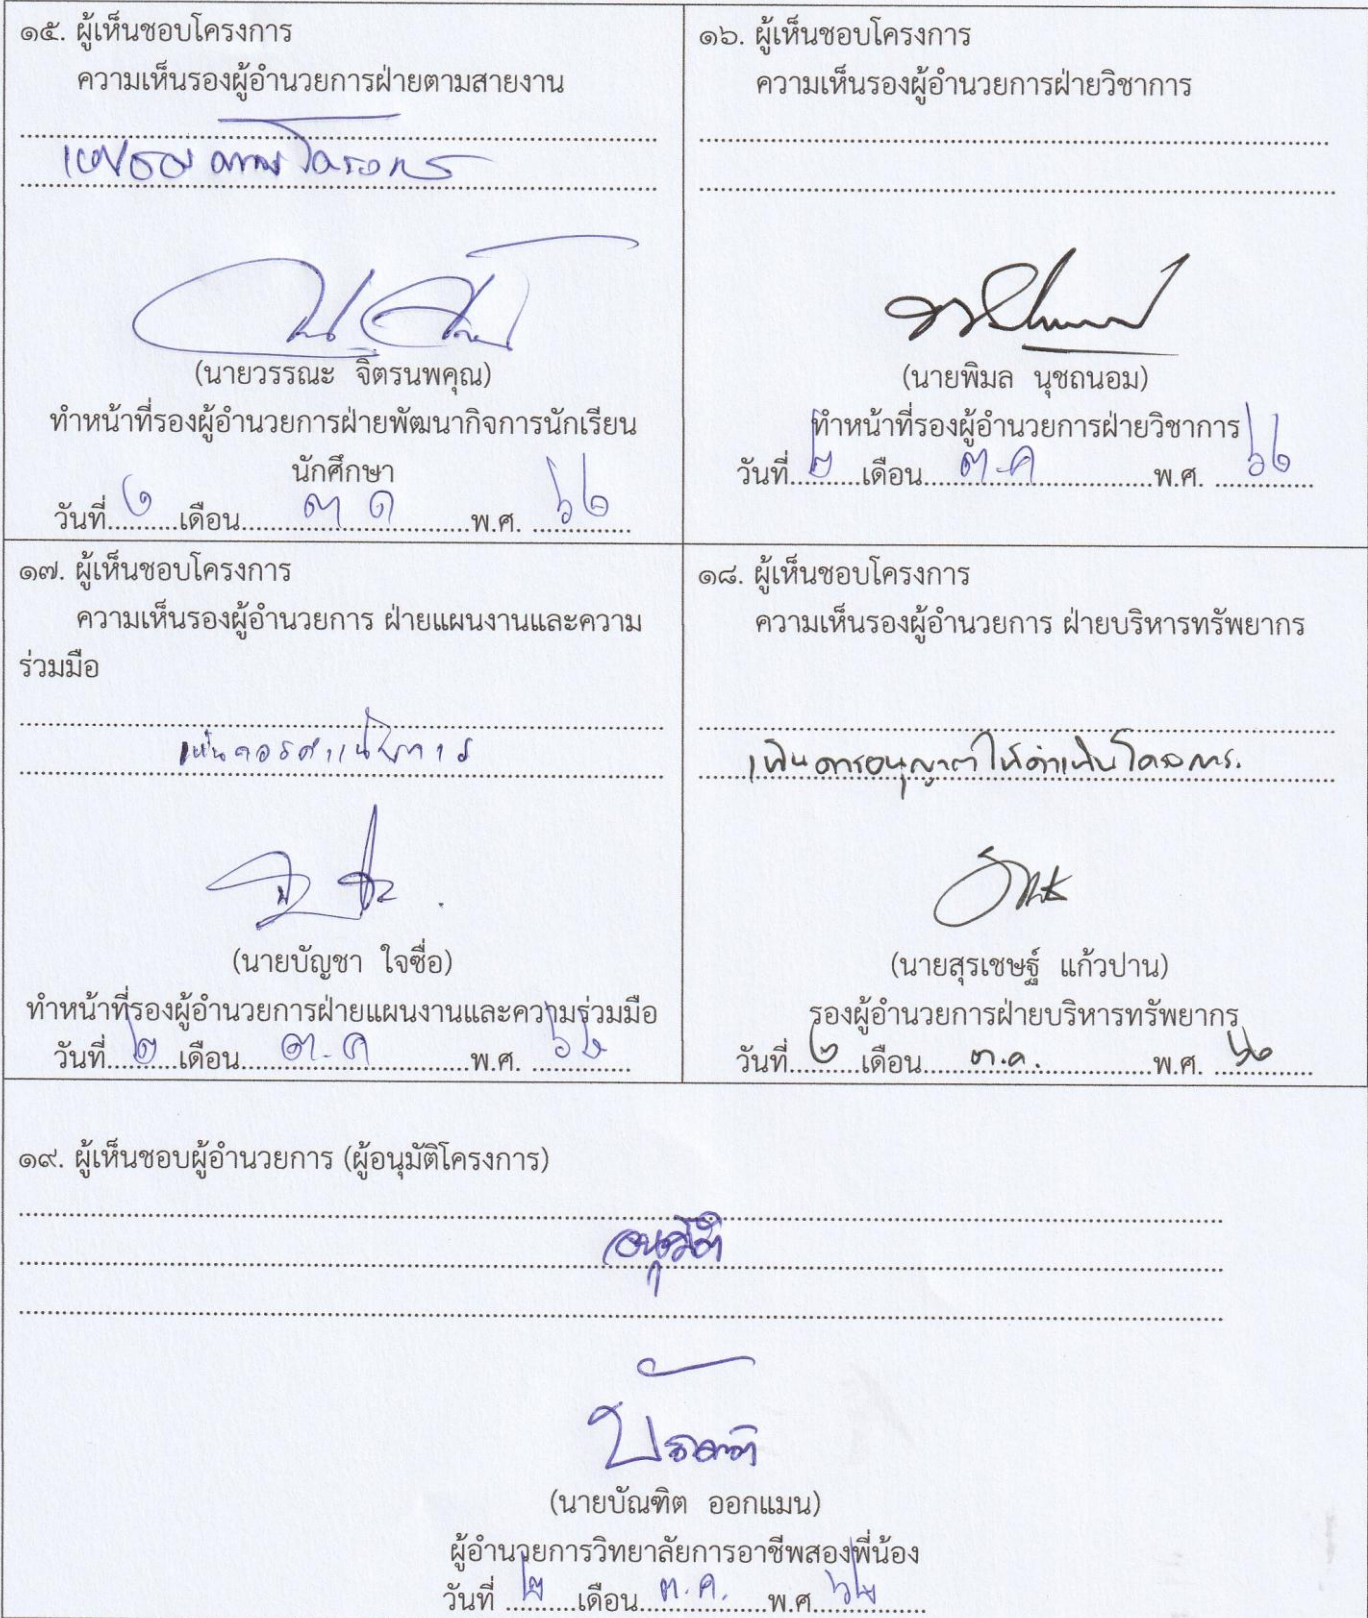 ๑๕. ผู้เห็นชอบโครงการ
ความเห็นรองผู้อำนวยการฝ่ายตามสายงาน
(นายวรรณะ จิตรนพคุณ)
ทำหน้าที่รองผู้อำนวยการฝ่ายพัฒนากิจการนักเรียน
นักศึกษา
วันที่..........เดือน..................................พ.ศ. ..............
๑๖. ผู้เห็นชอบโครงการ
ความเห็นรองผู้อำนวยการฝ่ายวิชาการ
(นายพิมล นุชถนอม)
ทำหน้าที่รองผู้อำนวยการฝ่ายวิชาการ
วันที่ ๒ เดือน ต.ค พ.ศ. ๖๒
๑๗. ผู้เห็นชอบโครงการ
ความเห็นรองผู้อำนวยการ ฝ่ายแผนงานและความ
ร่วมมือ
เห็นควรดำเนินการ
(นายบัญชา ใจซื่อ)
ทำหน้าที่รองผู้อำนวยการฝ่ายแผนงานและความร่วมมือ
วันที่ ๒ เดือน ต.ค พ.ศ. ๖๒
๑๘. ผู้เห็นชอบโครงการ
ความเห็นรองผู้อำนวยการ ฝ่ายบริหารทรัพยากร
เห็นควรอนุญาตให้ดำเนินโครงการ.
(นายสุรเชษฐ์ แก้วปาน)
รองผู้อำนวยการฝ่ายบริหารทรัพยากร
วันที่ ๒ เดือน ต.ค. พ.ศ. ๖๒
๑๙. ผู้เห็นชอบผู้อำนวยการ (ผู้อนุมัติโครงการ)
อนุมัติ
(นายบัณฑิต ออกแมน)
ผู้อำนวยการวิทยาลัยการอาชีพสองพี่น้อง
วันที่ ๒ เดือน ต.ค. พ.ศ. ๖๒